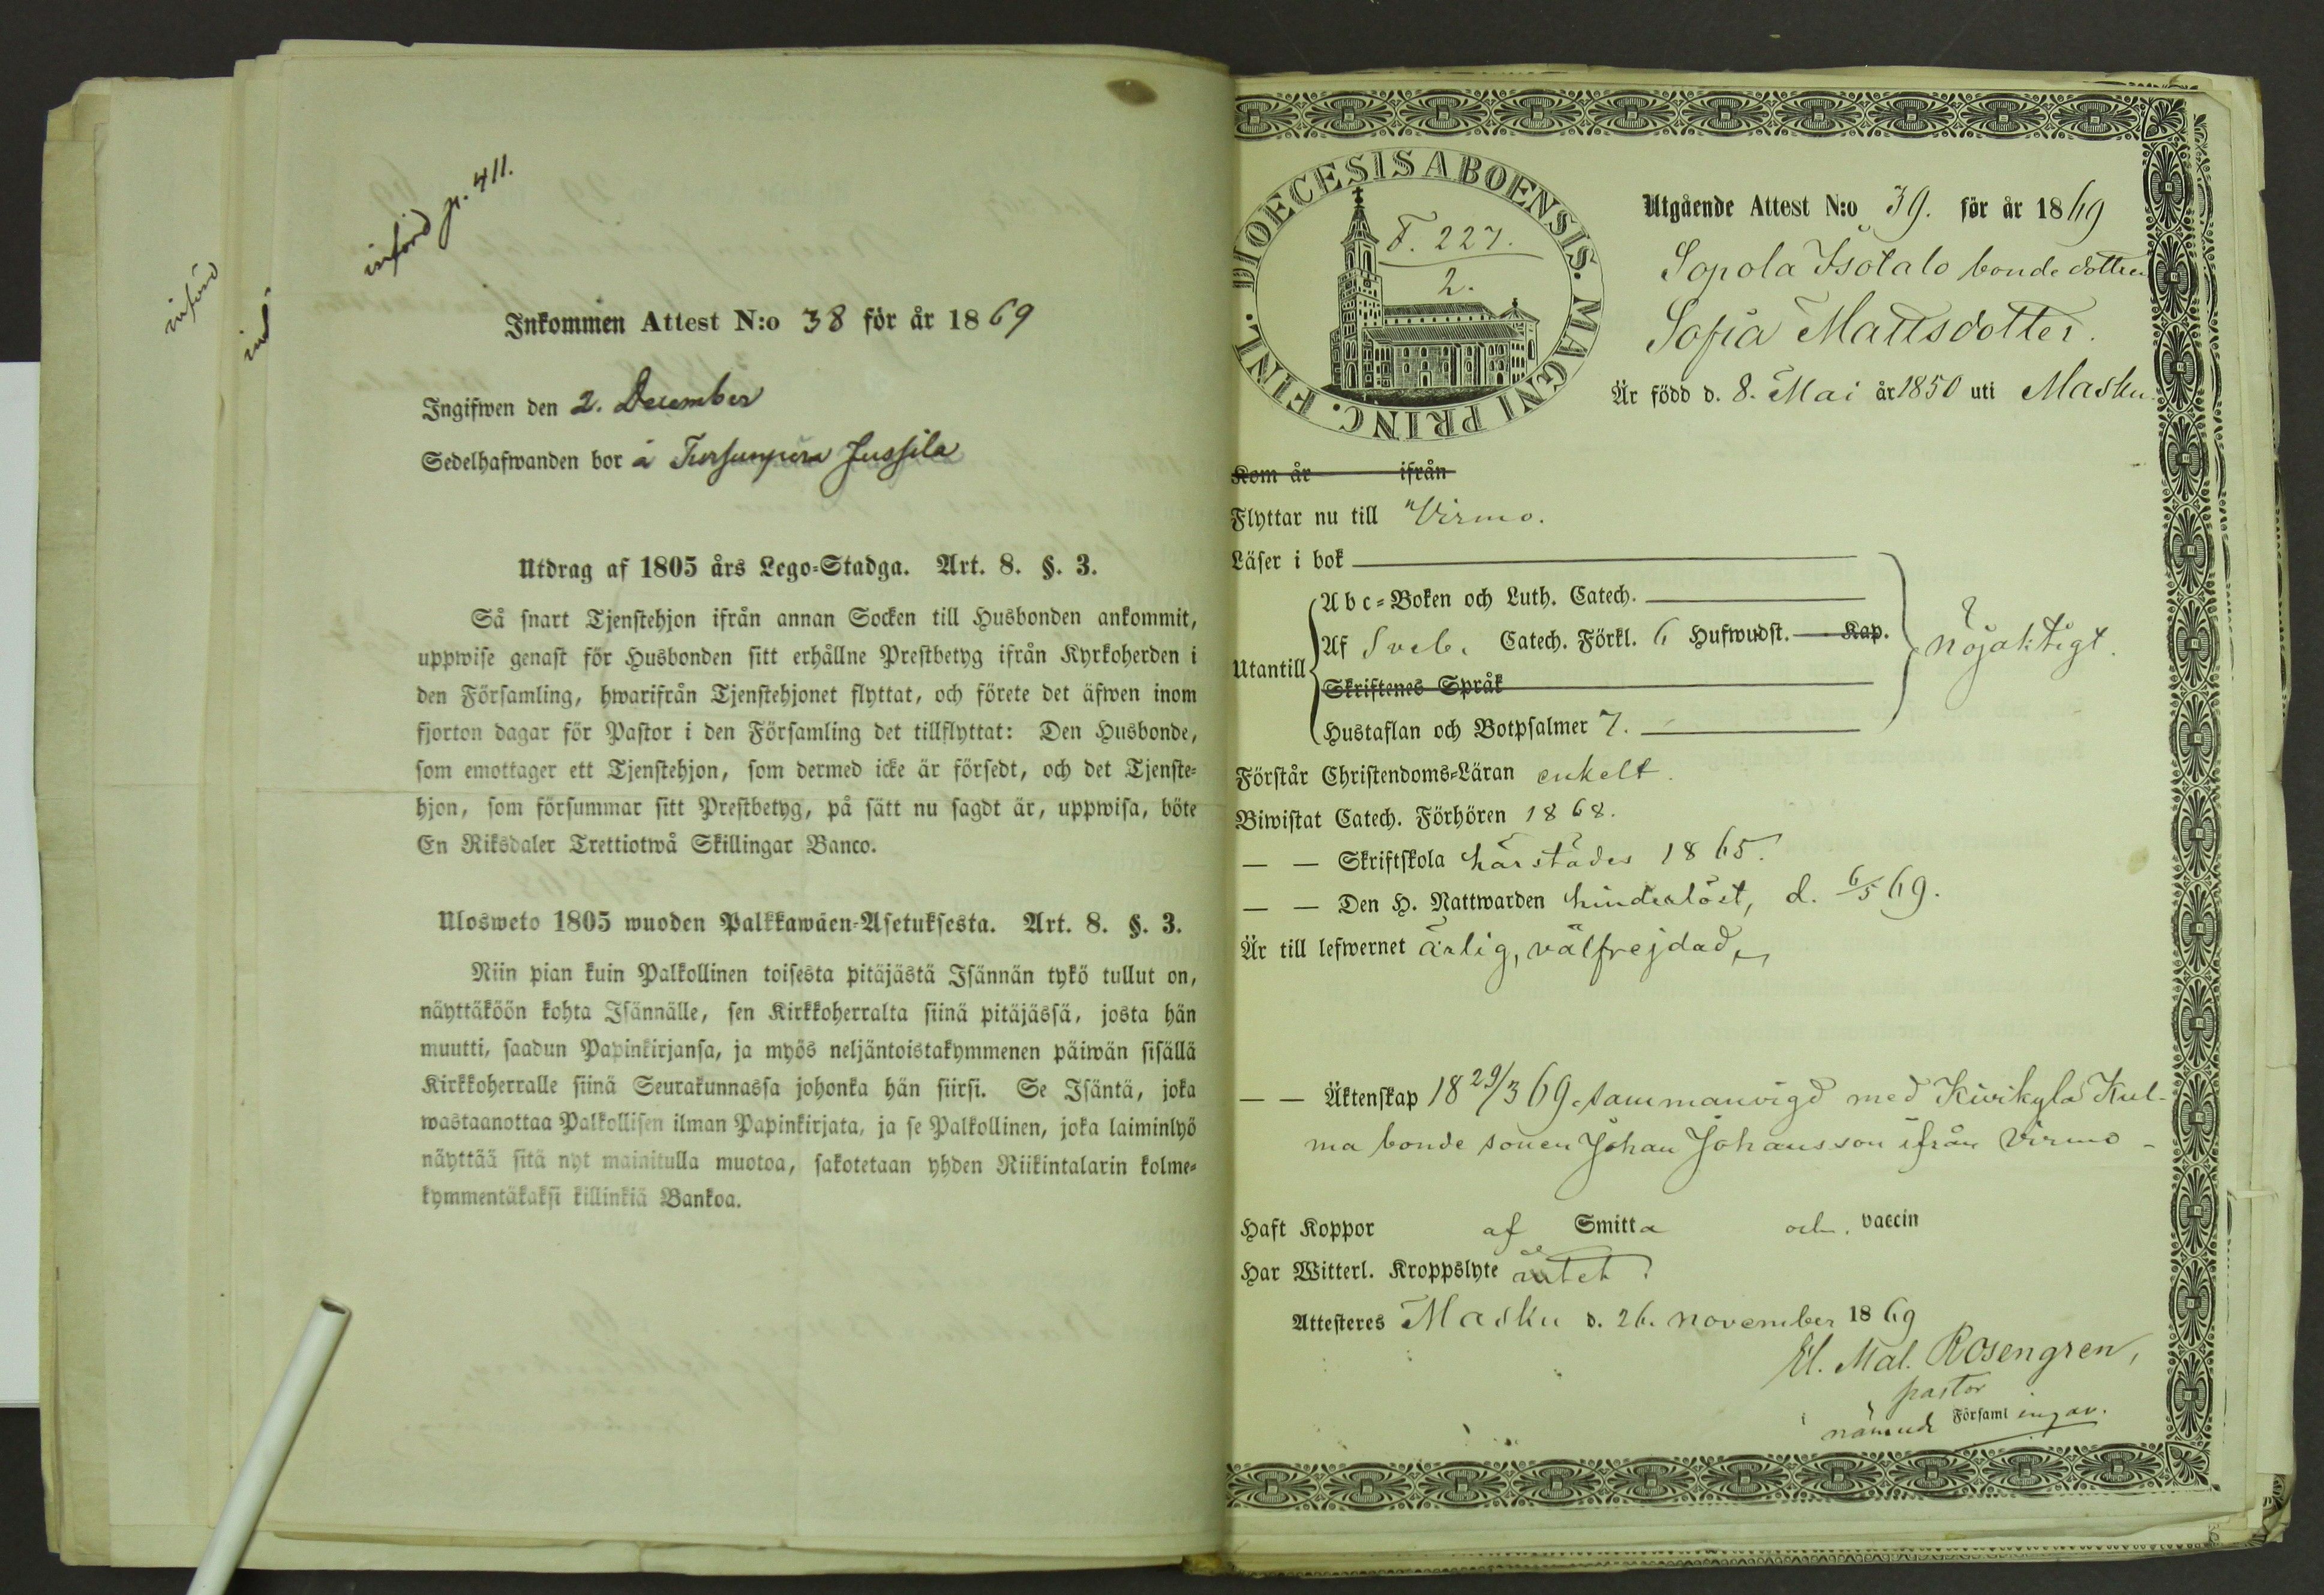 införd p. 411.
införd
inf
Inkommen Attest N:o 38 för år 1869
Ingifwen den 2. December
Sedelhafwanden bor å Tursunperä Jussila
Utdrag af 1805 års Lego-Stadga. Art. 8. §. 3.
Så snart Tjenstehjon ifrån annan Socken till Husbonden ankommit,
uppwise genast för Husbonden sitt erhållne Prestbetyg ifrån Kyrkoherden i
den Församling, hwarifrån Tjenstehjonet flyttat, och förete det äfwen inom
fjorton dagar för Pastor i den Församling det tillflyttat: Den Husbonde,
som emottager ett Tjenstehjon, som dermed icke är försedt, och det Tjenste-
hjon, som försummar sitt Prestbetyg, på sätt nu sagdt är, uppwisa, böte
En Riksdaler Trettiotwå Skillingar Banco.
Ulosweto 1805 wuoden Palkkawäen-Asetuksesta. Art. 8. §. 3.
Niin pian kuin Palkollinen toisesta pitäjästä Isännän tykö tullut on,
näyttäköön kohta Isännälle, sen Kirkkoherralta siinä pitäjässä, josta hän
muutti, saadun Papinkirjansa, ja myös neljäntoistakymmenen päiwän sisällä
Kirkkoherralle siinä Seurakunnassa johonka hän siirsi. Se Isäntä, joka
wastaanottaa Palkollisen ilman Papinkirjata, ja se Palkollinen, joka laiminlyö
näyttää sitä nyt mainitulla muotoa, sakotetaan yhden Riikintalarin kolme-
kymmentäkaksi killinkiä Bankoa.
DIOECESIS ABOENSIS. MAGNI PRINC. FINL.
F. 227.
2.
Utgående Attest N:o 39. för år 1869
Sopola Isotalo bonde dottren
Sofia Mattsdotter.
Är född d. 8. Mai år 1850 uti Masku.
Kom år ifrån
Flyttar nu till Virmo.
Läser i bok
Abc-Boken och Luth. Catech.
Utantill Af Sveb. Catech. Förkl. 6 Hufwudst. Kap. nöjaktigt.
Skriftenes Språk
Hustaflan och Botpsalmer 7.
Förstår Christendoms-Läran enkelt.
Biwistat Catech. Förhören 1868.
— — Skriftskola härstädes 1865.
— — Den H. Nattwarden hinderlöst, d. 6/5 69.
Är till lefwernet ärlig, välfrejdad,
— — Äktenskap 18 29/3 69. sammanvigd med Kivikylä Kul-
ma bonde sonen Johan Johansson ifrån Virmo -
Haft Koppor af Smitta och vaccin
Har Witterl. Kroppslyte intet.
Attesteres Masku d. 26. november 1869
Mal. Rosengren,
pastor
i nämnde Församlingar.